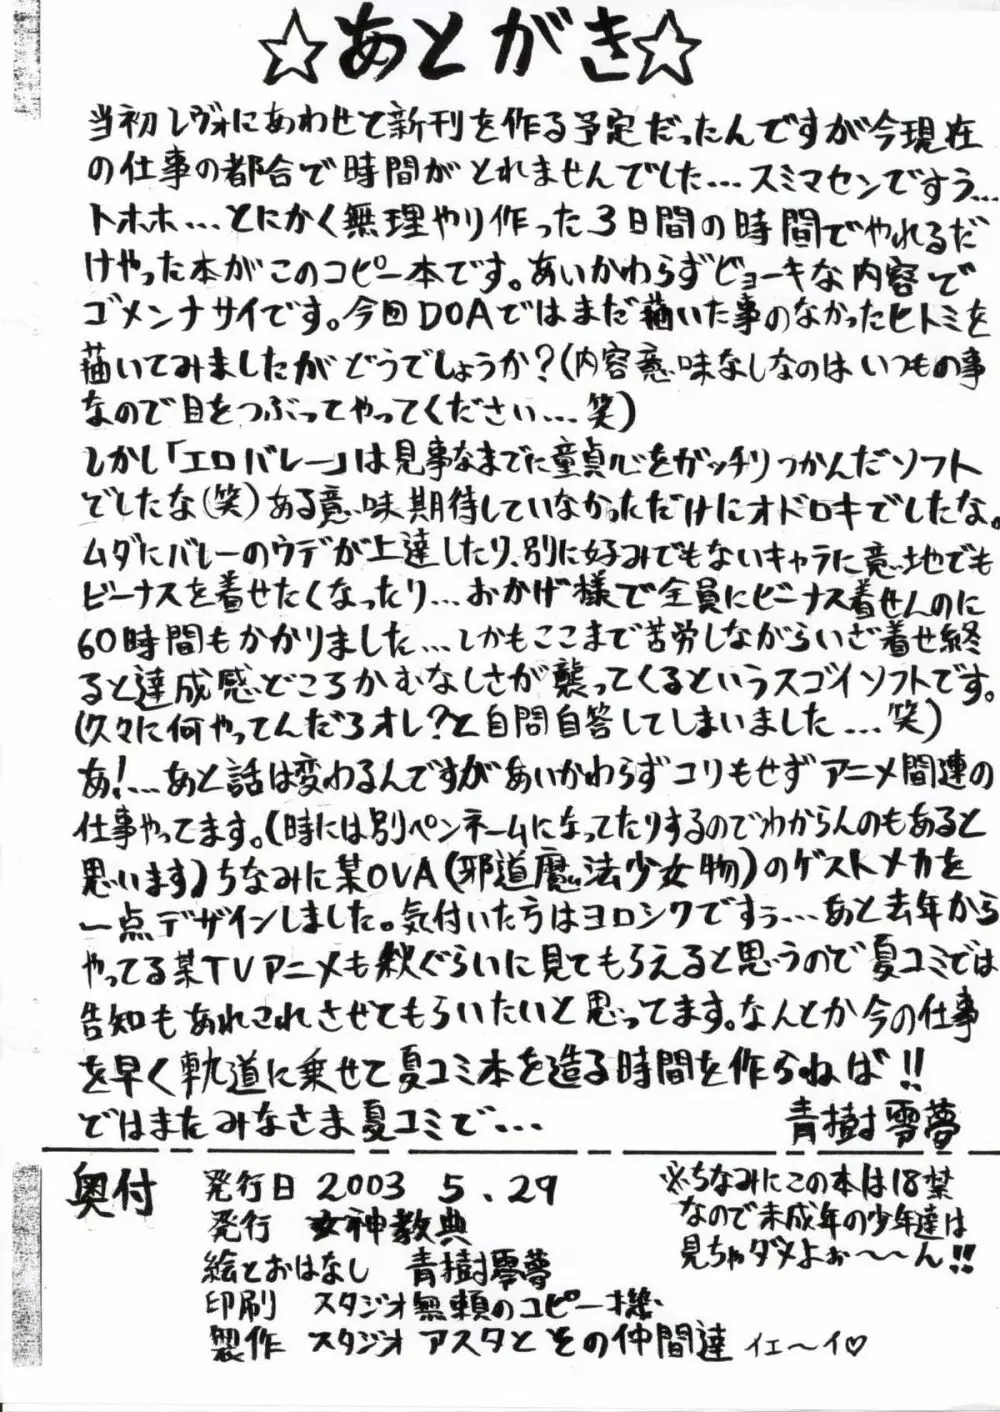 ☆あとがき☆
当初レヴォにあわせて新刊を作る予定だったんですが今現在
の仕事の都合で時間がとれませんでした…スミマセンですう…
トホホ…とにかく無理やり作った3日間の時間でやれるだ
けやった本がこのコピー本です。あいかわらずビョーキな内容で
ゴメンナサイです。今回DOAではまだ描いた事のなかったヒトミを
描いてみましたがどうでしょうか?(内容意味なしなのはいつもの事
なので目をつぶってやってください…笑)
しかし「エロバレー」は見事なまでに童貞心をガッチリつかんだソフト
でしたな(笑)ある意味期待していなかっただけにオドロキでしたな。
ムダにバレーのウデが上達したり、別に好みでもないキャラに意地でも
ビーナスを着せたくなったり…おかげ様で全員にビーナス着せんのに
60時間もかかりました…しかもここまで苦労しながらいざ着せ終
ると達成感どころかむなしさが襲ってくるというスゴイソフトです。
(久々に何やってんだろオレ?と自問自答してしまいました…笑)
あ!…あと話は変わるんですがあいかわらずコリもせずアニメ関連の
仕事やってます。(時には別ペンネームになってたりするのでわからんのもあると
思います)ちなみに某OVA(邪道魔法少女物)のゲストメカを
一点デザインしました。気付いた方はヨロシクですぅ…あと去年から
やってる某TVアニメも秋ぐらいに見てもらえると思うので夏コミでは
告知もあれこれさせてもらいたいと思ってます。なんとか今の仕事
を早く軌道に乗せて夏コミ本を造る時間を作らねば!!
ではまたみなさま夏コミで…
青樹零夢
奥付
発行日 2003 5.29
発行 女神教典
絵とおはなし 青樹零夢
印刷 スタジオ無頼のコピー機
製作 スタジオ アスタとその仲間達 イェ〜イ♡
※ちなみにこの本は18禁
なので未成年の少年達は
見ちゃダメよぉ〜〜ん!!